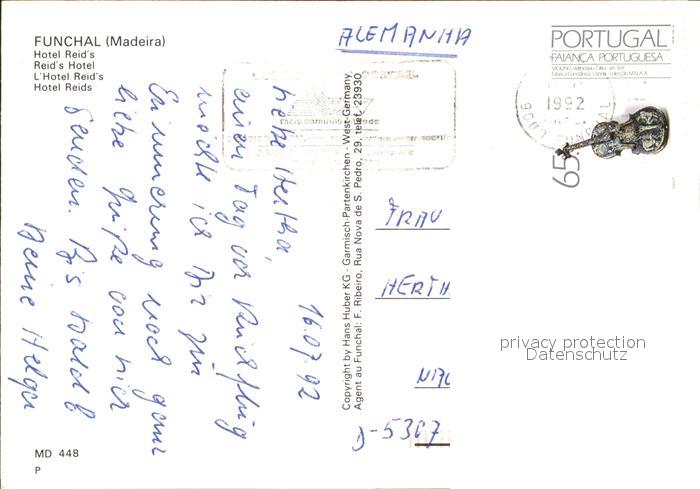 FUNCHAL (Madeira)
Hotel Reid's
Reid's Hotel
L'Hotel Reid's
Hotel Reids
16.07.92
Liebe Hertha,
einen Tag vor Rückflug
möchte ich Dir zur
Erinnerung noch ganz
liebe Grüße von hier
senden. Bis bald
Deine Helga
MD 448
P
Copyright by Hans Huber KG - Garmisch-Partenkirchen - West-Germany
Agent au Funchal: F. Ribeiro, Rua Nova de S. Pedro, 29, telef. 23930
ALEMANHA
PORTUGAL
FAIANÇA PORTUGUESA
65.
1992
FUNCHAL
FRAU
HERTH
D-5307
privacy protection
Datenschutz